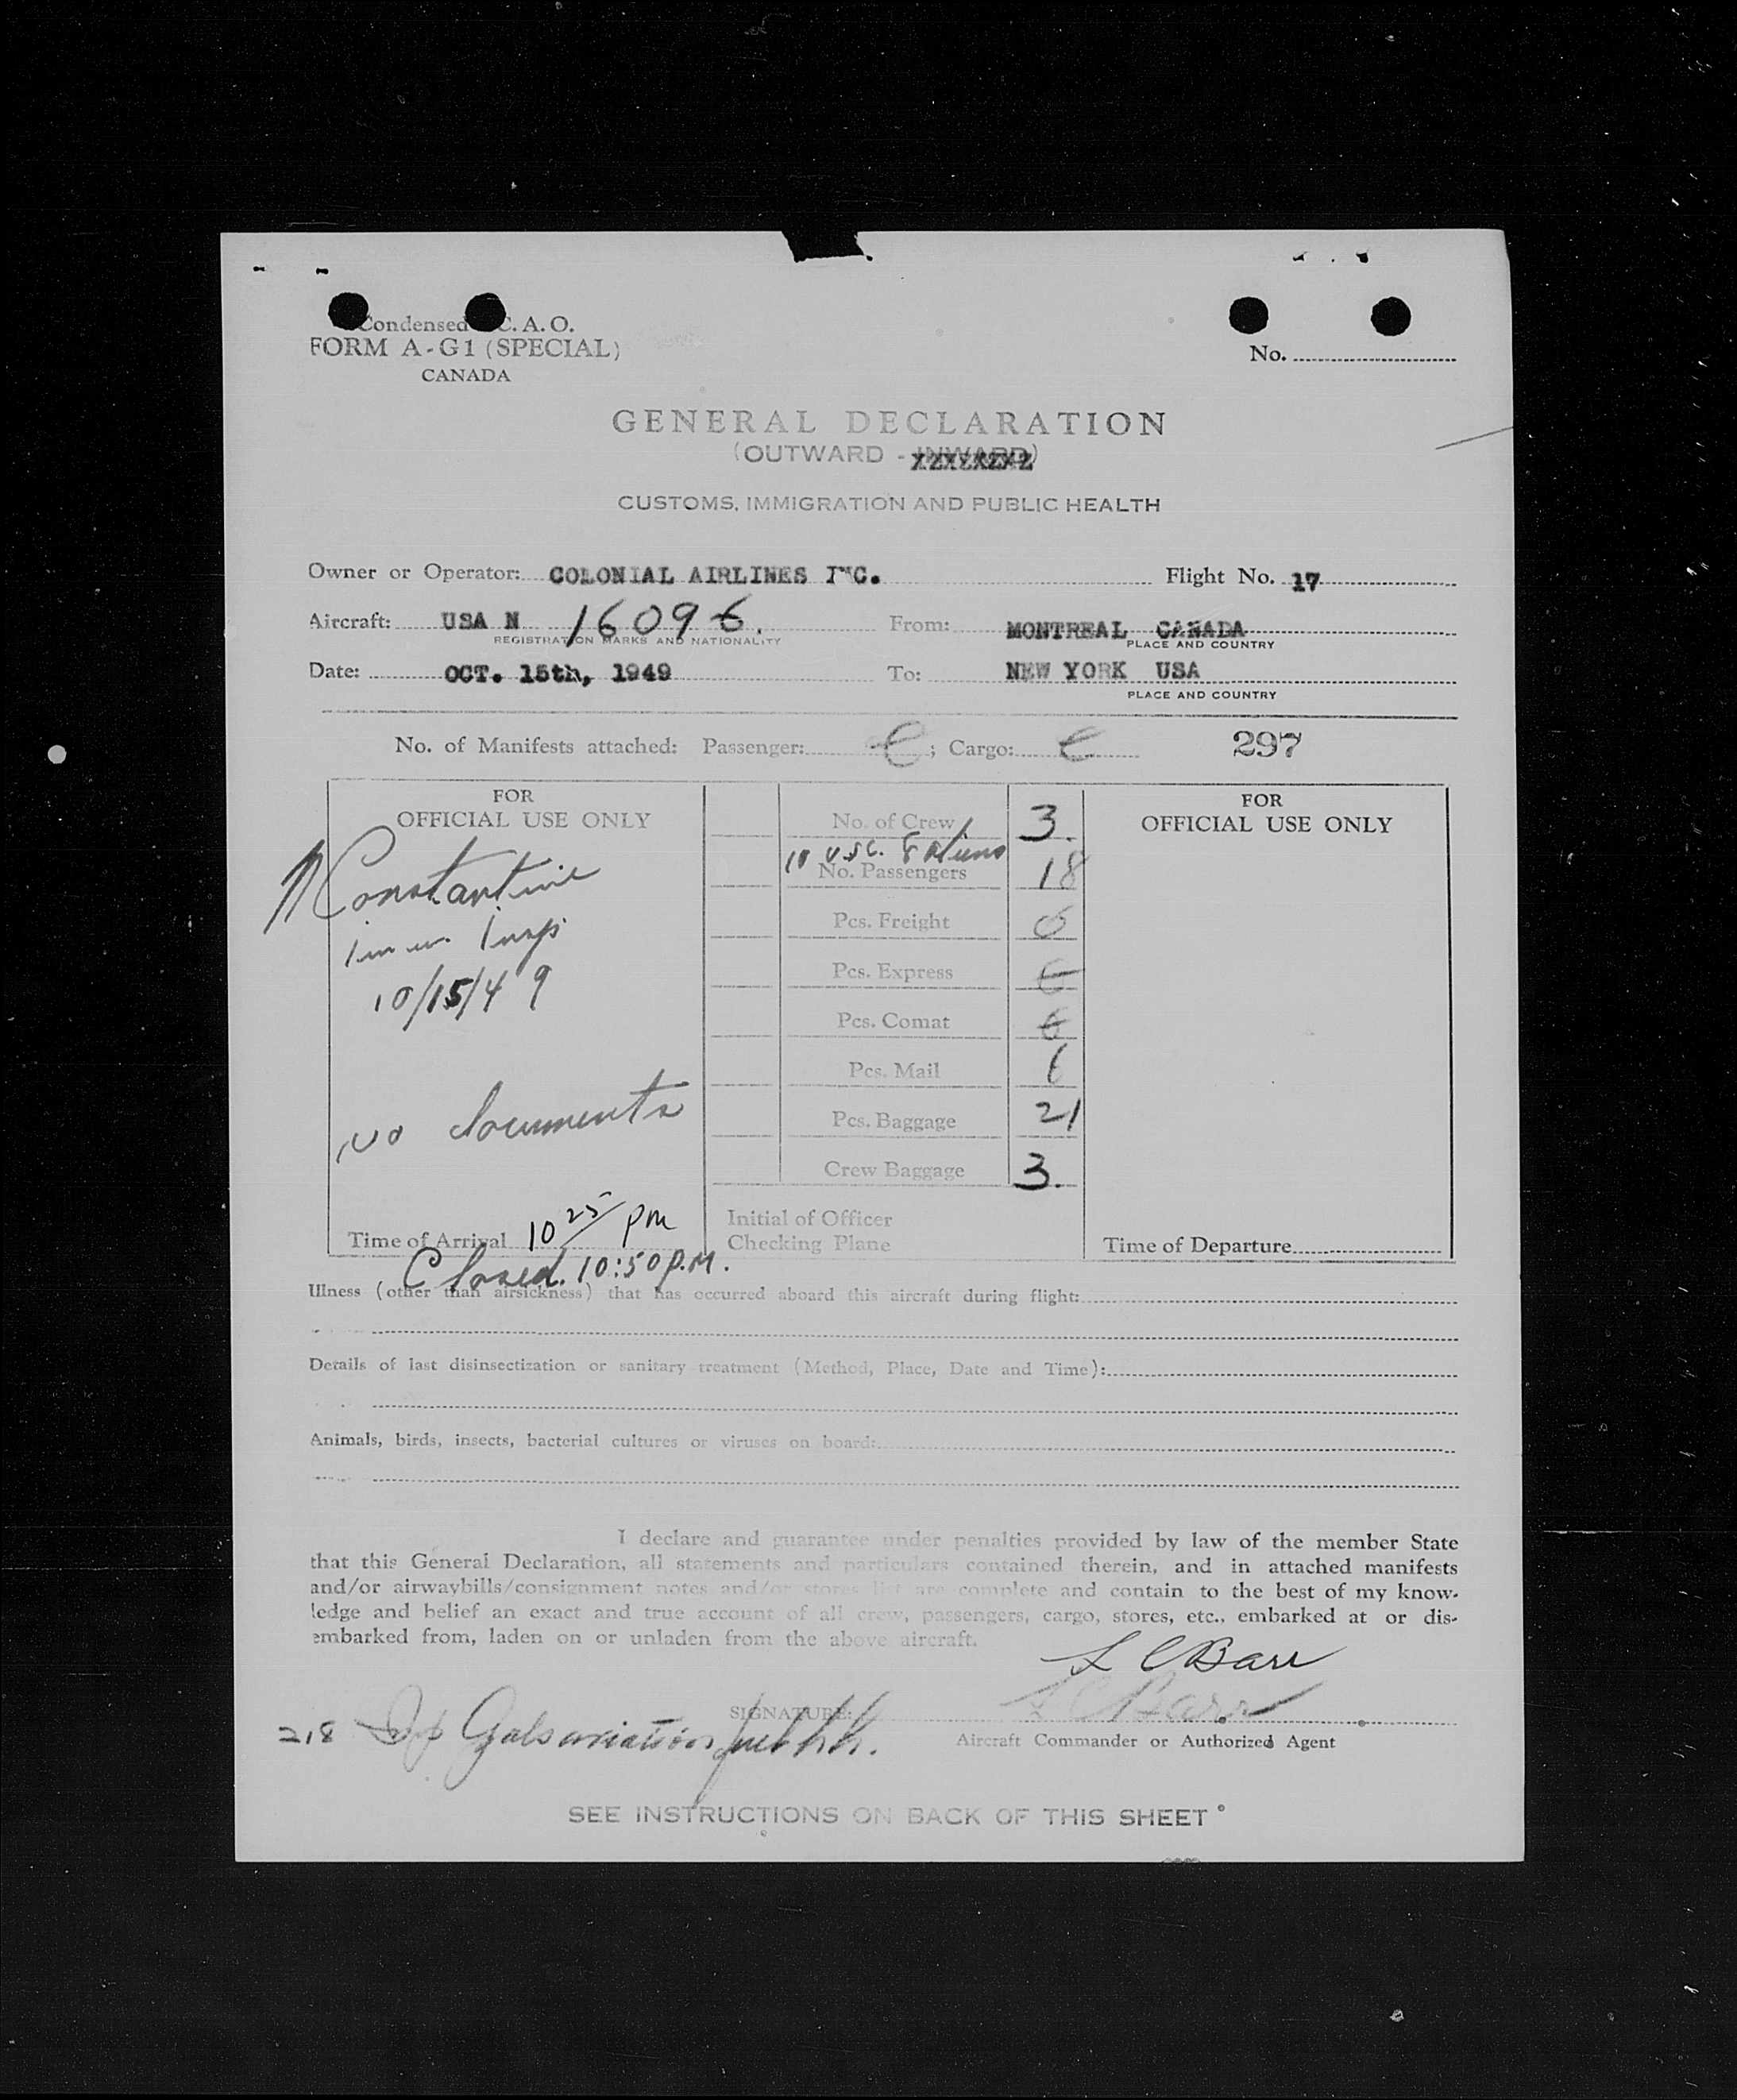 Condensed C. A. O.
FORM A-G1 (SPECIAL)
CANADA
No.
GENERAL DECLARATION
(OUTWARD - INWARD)
CUSTOMS, IMMIGRATION AND PUBLIC HEALTH
Owner or Operator: COLONIAL AIRLINES INC. Flight No. 17
Aircraft: USA N 16096. From: MONTREAL CANADA
REGISTRATION MARKS AND NATIONALITY PLACE AND COUNTRY
Date: OCT. 15th, 1949 To: NEW YORK USA
PLACE AND COUNTRY
No. of Manifests attached: Passenger: ; Cargo: 297
FOR
OFFICIAL USE ONLY
Constantine
Imm. Insp
10/15/49
no documents
Time of Arrival 10 25 pm
Closed. 10:50 P.M.
No. of Crew 3.
10 U.S.C. 8 Aliens
No. Passengers 18
Pcs. Freight 0
Pcs. Express
Pcs. Comat
Pcs. Mail
Pcs. Baggage 21
Crew Baggage 3.
Initial of Officer
Checking Plane
FOR
OFFICIAL USE ONLY
Time of Departure
Illness (other than airsickness) that has occurred aboard this aircraft during flight:
Details of last disinsectization or sanitary treatment (Method, Place, Date and Time):
Animals, birds, insects, bacterial cultures or viruses on board:
I declare and guarantee under penalties provided by law of the member State
that this General Declaration, all statements and particulars contained therein, and in attached manifests
and/or airwaybills/consignment notes and/or stores list are complete and contain to the best of my know-
ledge and belief an exact and true account of all crew, passengers, cargo, stores, etc., embarked at or dis-
embarked from, laden on or unladen from the above aircraft.
L C Barr
SIGNATURE: L C Barr
218 Gals aviation fuel
Aircraft Commander or Authorized Agent
SEE INSTRUCTIONS ON BACK OF THIS SHEET